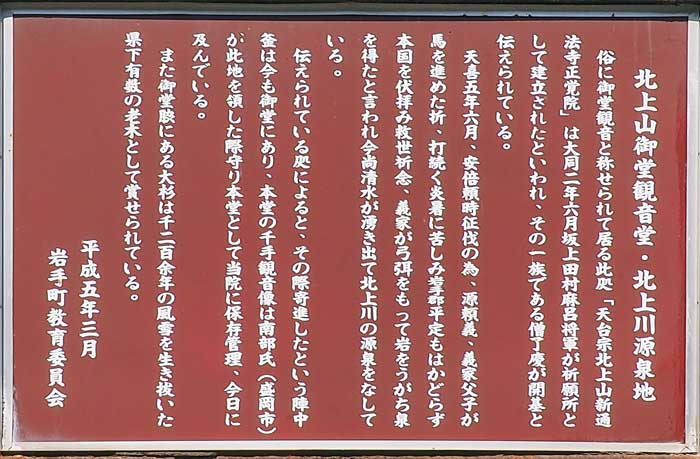 北上山御堂観音堂・北上川源泉地
俗に御堂観音と称せられて居る此処「天台宗北上山新通
法寺正覚院」は大同二年六月坂上田村麻呂将軍が祈願所と
して建立されたといわれ、その一族である僧了慶が開基と
伝えられている。
天喜五年六月、安倍頼時征伐の為、源頼義、義家父子が
馬を進めた折、打続く炎暑に苦しみ平定もはかどらず
本国を伏拝み救世祈念、義家が弓弭をもって岩をうがち泉
を得たと言われ今尚清水が湧き出て北上川の源泉をなして
いる。
伝えられている処によると、その際寄進したという陣中
釜は今も御堂にあり、本堂の千手観音像は南部氏（盛岡市）
が此地を領した際守り本堂として当院に保存管理、今日に
及んでいる。
また御堂脇にある大杉は千二百余年の風雪を生き抜いた
県下有数の老木として賞せられている。
平成五年三月
岩手町教育委員会